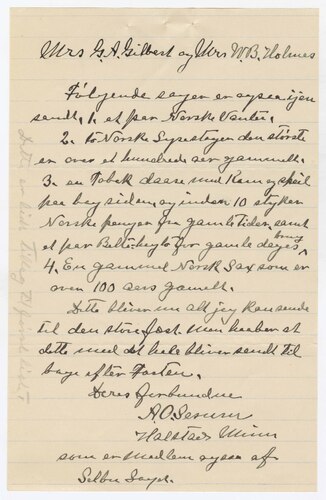 Mrs G.A. Gilbert og Mrs W.B. Holmes
Følgende sager er ogsaa igen
sendt. 1. et par Norske Vanter.
2. to Norske den største
er over et hundrede aar gammelt.
3. en Tobak daase med Kam og speil
paa beg siden og inden 10 styken
Norske penger fra gamle tiden samt
et par Belte for gamle dages
brug
4. En gammel Norsk Sax som er
over 100 aars gamelt.
Dette bliver nu alt jeg kan sende
til den store fest men haaber at
dette med det hele bliver sendt til
bage efter Festen.
Deres ærbundne
A.O.
Halstad Minn
som er medlem ogsaa af
Selbu
Dette er